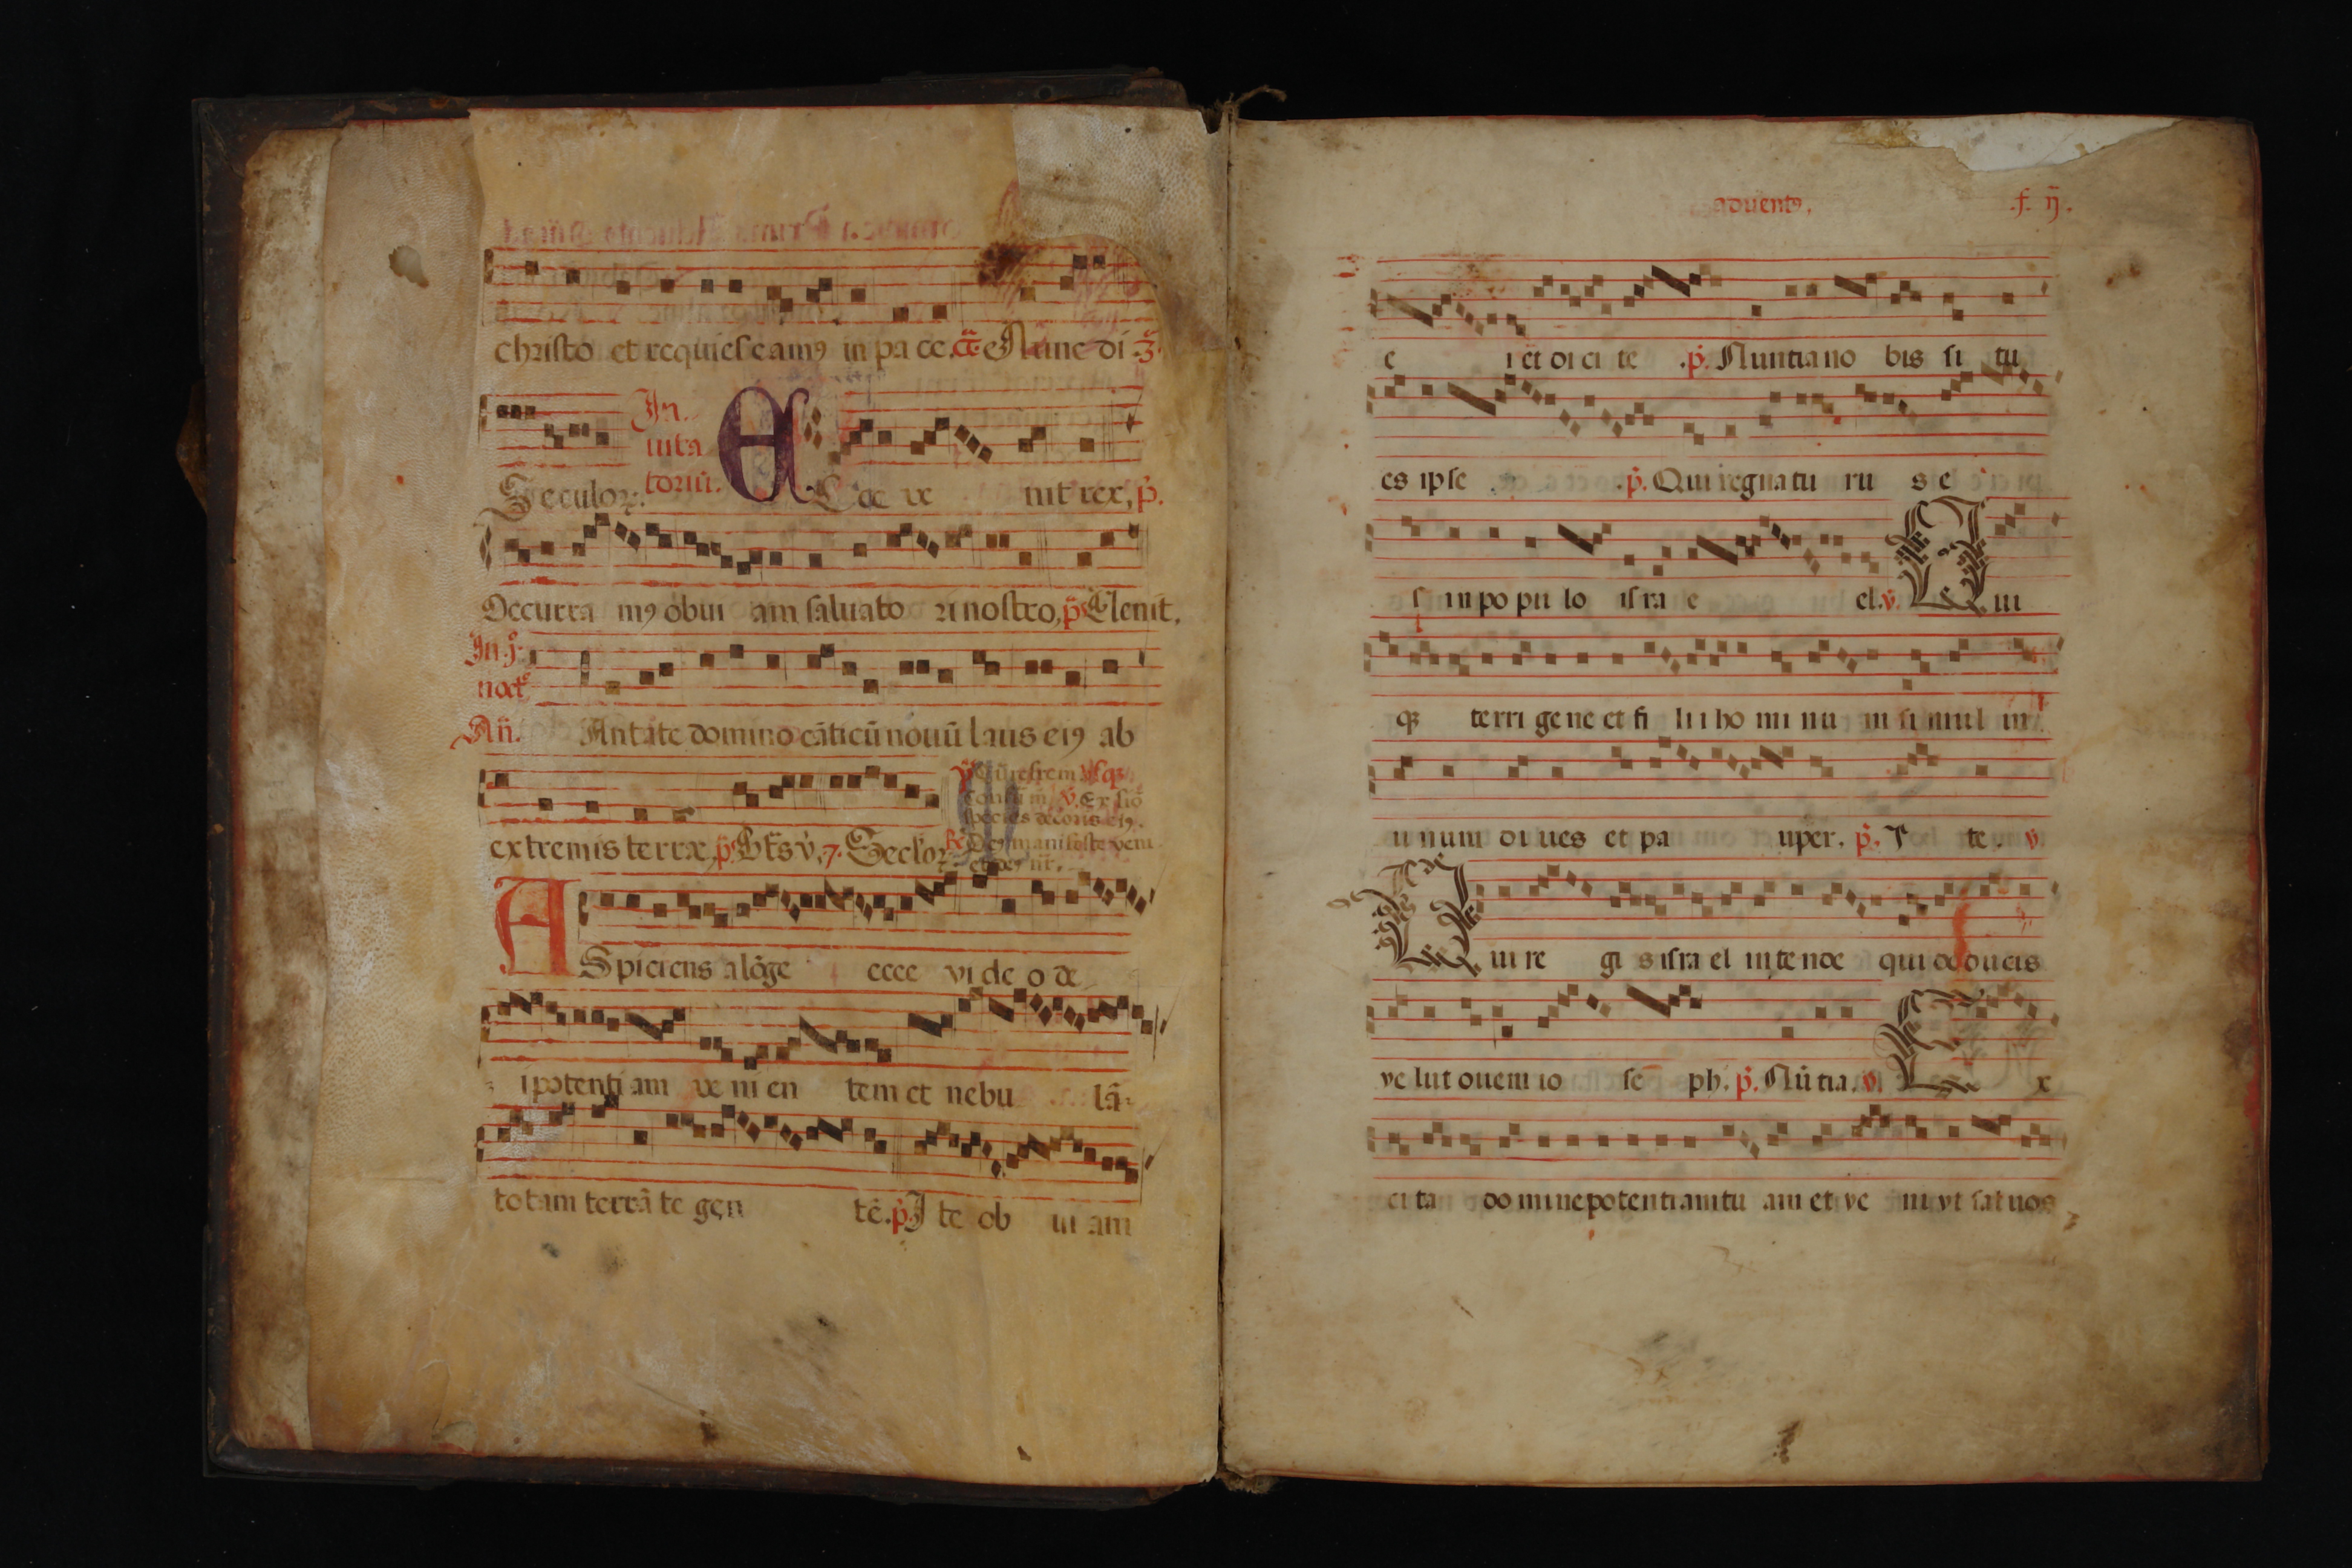 christo et requiescamꝯ in pa ce. Nunc di
In
uita
toriũ.
Seculoꝝ. Ecce ve nit rex, p̃.
Occurra mꝯ obui am saluato ri nostro, p̃ Venit.
In .j.
noct̃
An̄. Antate domino cãticũ nouũ laus eiꝯ ab
extremis terræ, p̃ v̄. Seclo̅ꝝ
v̄. Ex sio̅
species decoris eiꝯ.
Deꝯ manifeste veni
et deꝯ nr̄.
ASpiciens a lõge ecce vi de o de
i potenti am ve ni en tem et nebu lã
totam terrã te gen tẽ. p̃. I te ob ui am
aduentꝯ. .f. ij.
e i et di ci te .p̃. Nuntia no bis si tu
es ipse .p̃. Qui regnatu ru s e
s in po pu lo isra e el. v̄. Qui
qꝫ terri gene et fi lii ho mi nu m si mul in
u num di ues et pa uper. p̃. I te. v̄.
Qui re gi s isra el in ten de qui deducis
ve lut ouem io se ph. p̃. Nũtia. v̄. E x
ci ta do mine potentiam tu am et ve ni vt sal uos